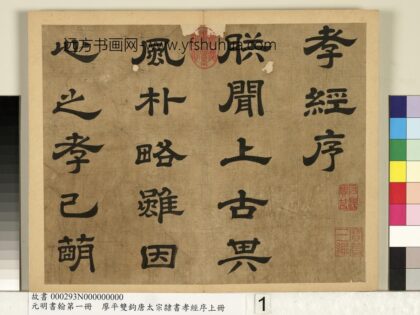 远方书画网-www.yfshuhua.com
孝經序
朕聞上古其
風朴略雖因
心之孝已萌
故書 000293N000000000
元明書翰第一冊 廖平雙鉤唐太宗隸書孝經序上冊
1